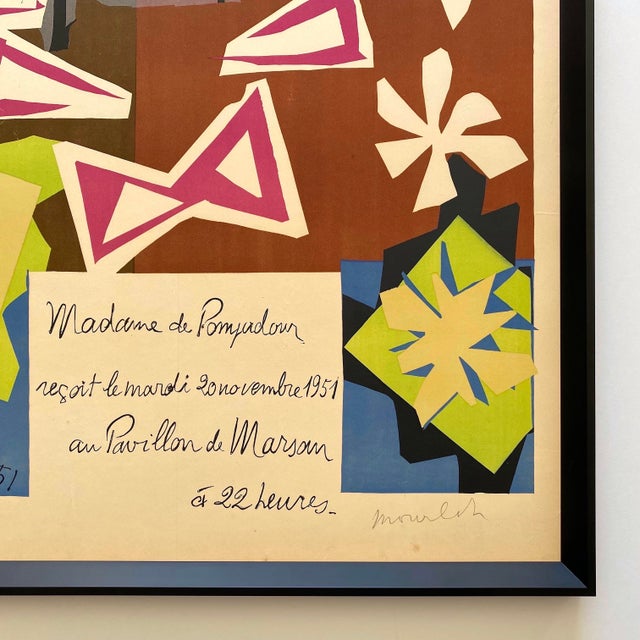 Madame de Pompadour
reçoit le mardi 20 novembre 1951
au Pavillon de Marsan
à 22 heures_
51
Mourlot